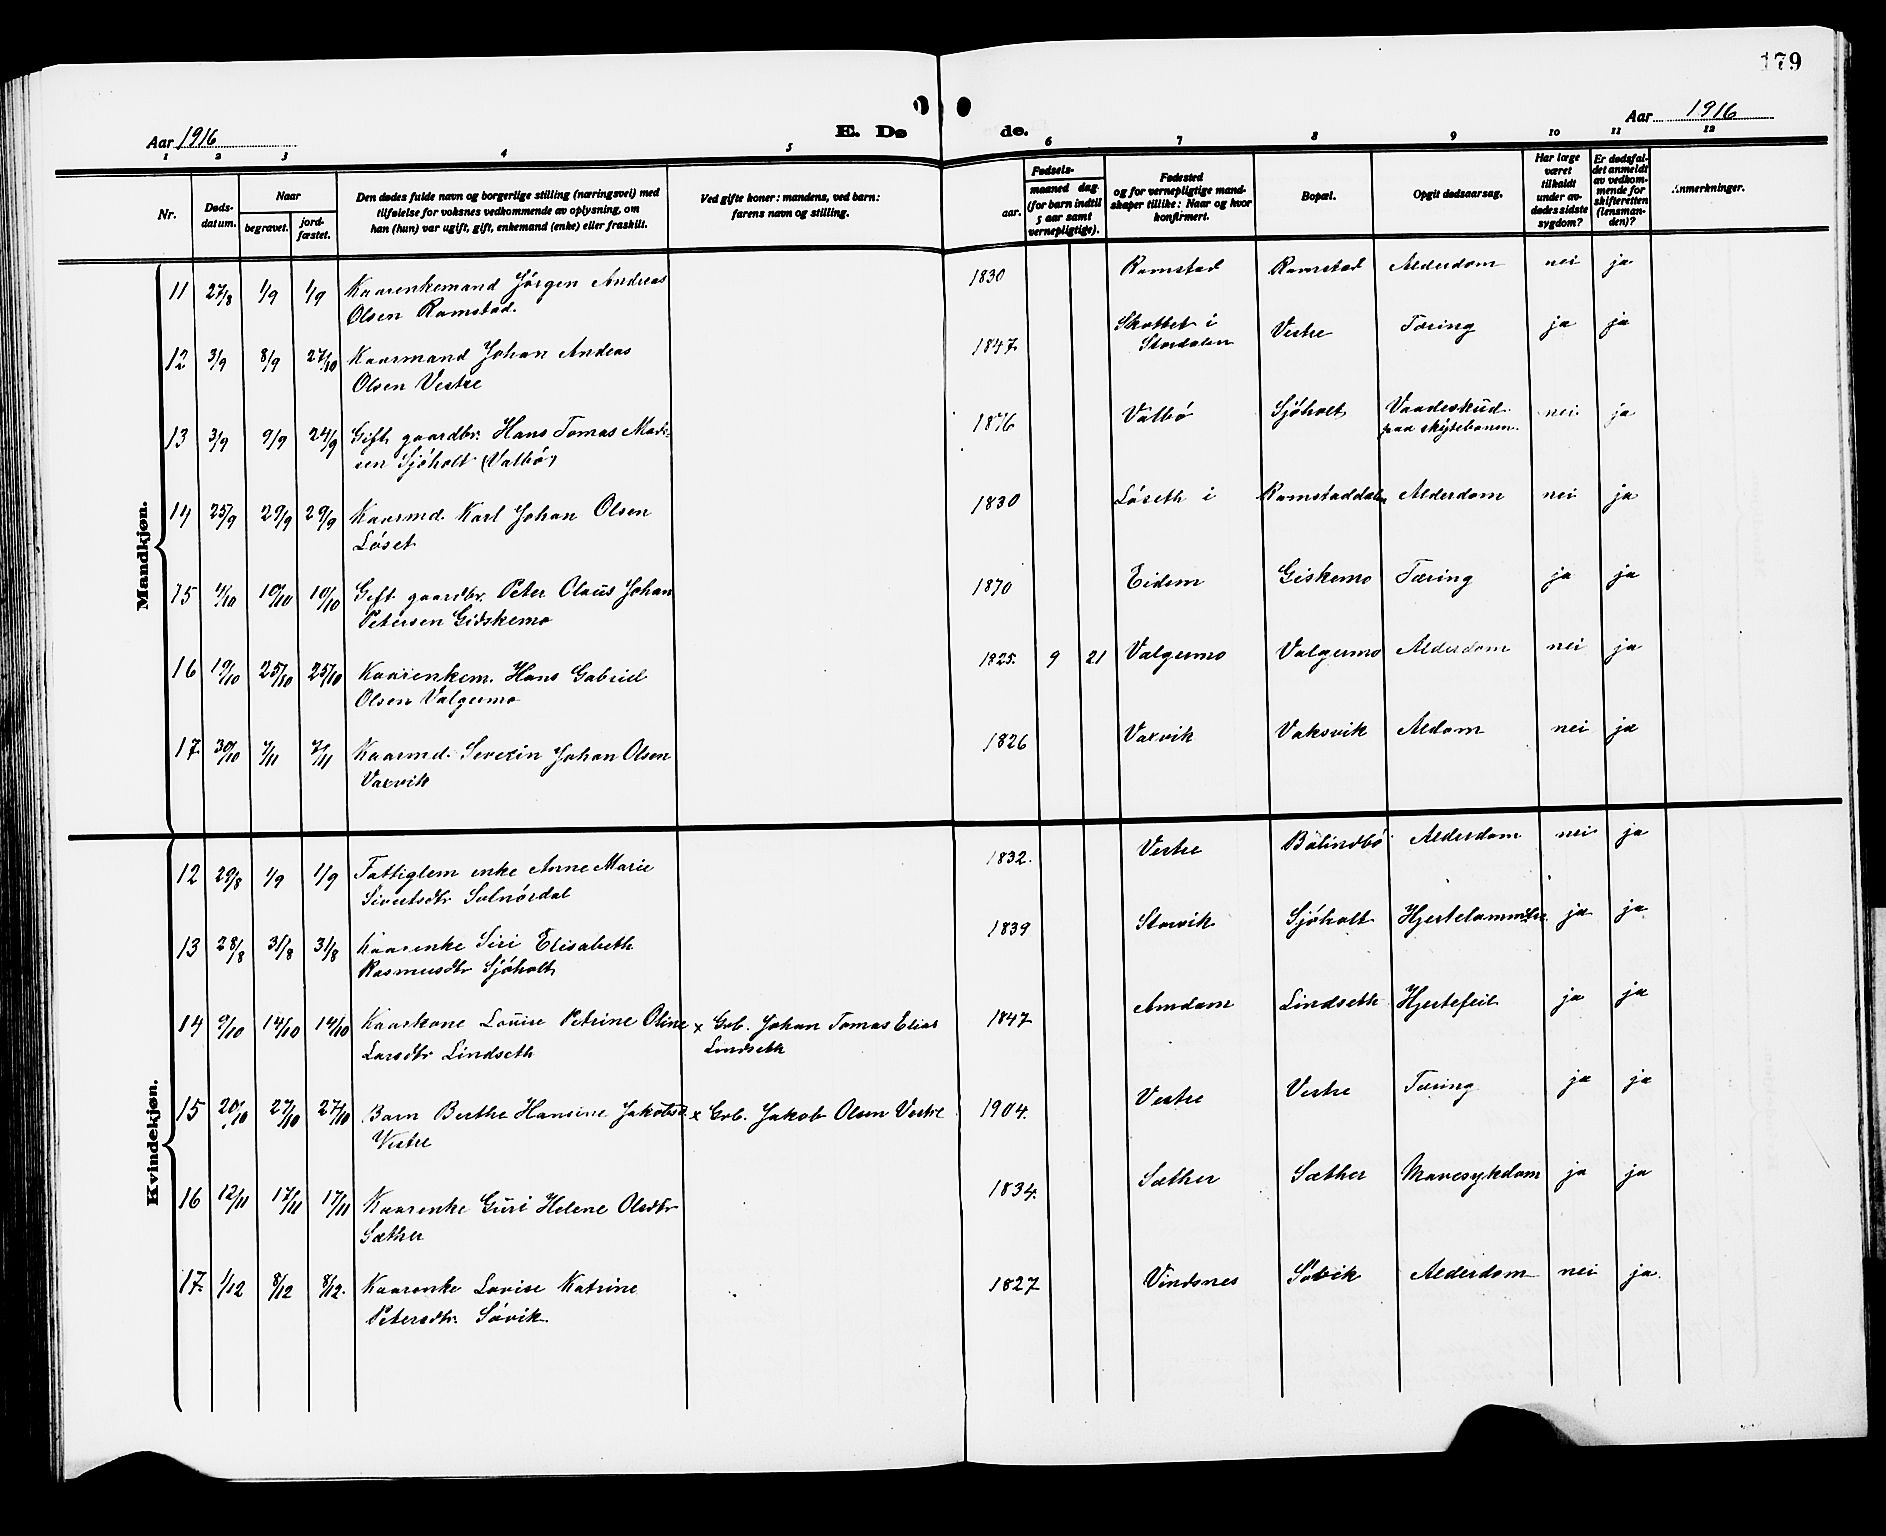 179
Aar 1916
E. Dø de.
Aar 1916
1 2 3 4 5 6 7 8 9 10 11 12
Nr.
Døds-
datum.
Naar
begravet.
jord-
fæstet.
Den dødes fulde navn og borgerlige stilling (næringsvei) med
tilføielse for voksnes vedkommende av oplysning, om
han (hun) var ugift, gift, enkemand (enke) eller fraskilt.
Ved gifte koner: mandens, ved barn:
farens navn og stilling.
Fødsels-
aar.
maaned dag
(for barn indtil
5 aar samt
vernepligtige).
Fødested
og for vernepligtige mand-
skaper tillike: Naar og hvor
konfirmert.
Bopæl.
Opgit dødsaarsag.
Har læge
været
tilkaldt
under av-
dødes sidste
sygdom?
Er dødsfal-
det anmeldt
av vedkom-
mende for
skifteretten
(lensman-
den)?
Anmerkninger.
Mandkjøn.
11 27/8 1/9 1/9 Kaarenkemand Jørgen Andreas 1830 Ramstad Ramstad Alderdom nei ja
Olsen Ramstad.
12 3/9 8/9 27/10 Kaarmand Johan Andeas 1847. Skottet i Vestre Tæring ja ja
Olsen Vestre Stordalen
13 3/9 9/9 24/9 Gift gaardbr. Hans Tomas Mad- 1876 Valbø Sjøholt Vaadeskud nei ja
sen Sjøholt (Valbø) paa skytebanen.
14 25/9 29/9 29/9 Kaarmd. Karl Johan Olsen 1830 Løseth i Ramstaddalen Alderdom nei ja
Løset
15 4/10 10/10 10/10 Gift gaardbr. Peter Claus Johan 1870 Eidem Giskemo Tæring ja ja
Petersen Gidskemo
16 19/10 25/10 25/10 Kaarenkem. Hans Gabriel 1825. 9 21 Valgermo Valgermo Alderdom nei ja
Olsen Valgermo
17. 30/10 7/11 7/11 Kaarmd. Severin Johan Olsen 1826 Vaxvik Vaksvik Aldom nei ja
Vaxvik
Kvindekjøn.
12 29/8 1/9 1/9 Fattiglem enke Anne Marie 1832. Vestre Bölindbø Alderdom nei ja
Sivertsdtr Solnørdal
13 28/8 31/8 31/8 Kaarenke Siri Elisabeth 1839 Storvik Sjøholt Hjertelammelse ja ja
Rasmusdtr Sjøholt
14 9/10 14/10 14/10 Kaarkone Louise Petrine Oline x Grb. Johan Tomas Elias 1847 Amdam Lindseth Hjertefeil ja ja
Larsdtr Lindseth Lindseth
15 20/10 27/10 27/10 Barn Berthe Hansine Jakobsd x Grb. Jakob Olsen Vestre 1904. Vestre Vestre Tæring ja ja
Vestre
16 12/11 17/11 17/11 Kaarenke Guri Helene Olsdtr 1834. Sæther Sæther Mavesykdom ja ja
Sæther
17. 1/12 8/12 8/12. Kaarenke Lovise Katrine 1827 Vindsnes Søvik Alderdom nei ja.
Petersdtr. Søvik